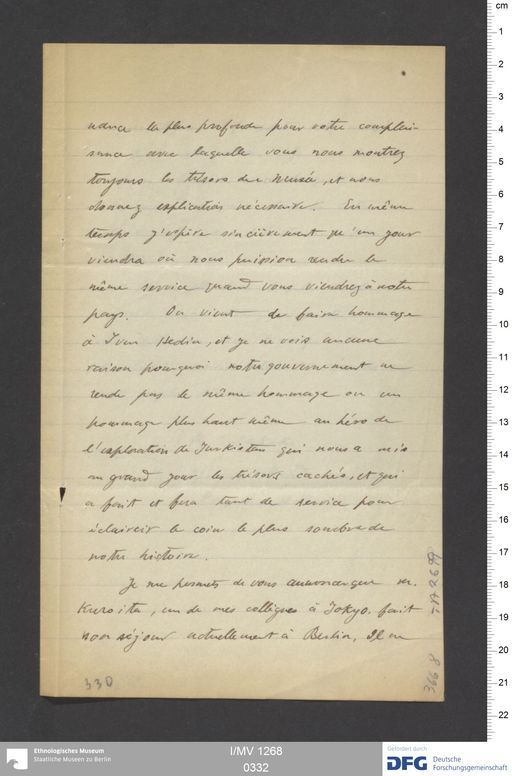 nance la plus profonde pour votre complai-
sance avec laquelle vous nous montrez
toujours les trésors du Musée, et nous
donnez explication nécessaire. En même
temps j'espère sincèrement qu'un jour
viendra où nous puission rendre le
même service quand vous viendrez à notre
pays. On vient de faire hommage
à Sven Hedin, et je ne vois aucune
raison pourquoi notre gouvernement ne
rende pas le même hommage ou un
hommage plus haut même au héro de
l'exploration de Turkistan qui nous a mis
au grand jour les trésors cachés, et qui
a fait et fera tant de service pour
éclaircir le coin le plus sombre de
notre histoire.
Je me permets de vous annoncer que M.
Kuroita, un de mes collègues à Tokyo fait
son séjour actuellement à Berlin, Il m
330
3668
cm
1
2
3
4
5
6
7
8
9
10
11
12
13
14
15
16
17
18
19
20
21
22
Ethnologisches Museum
Staatliche Museen zu Berlin
I/MV 1268
0332
Gefördert durch
DFG Deutsche
Forschungsgemeinschaft